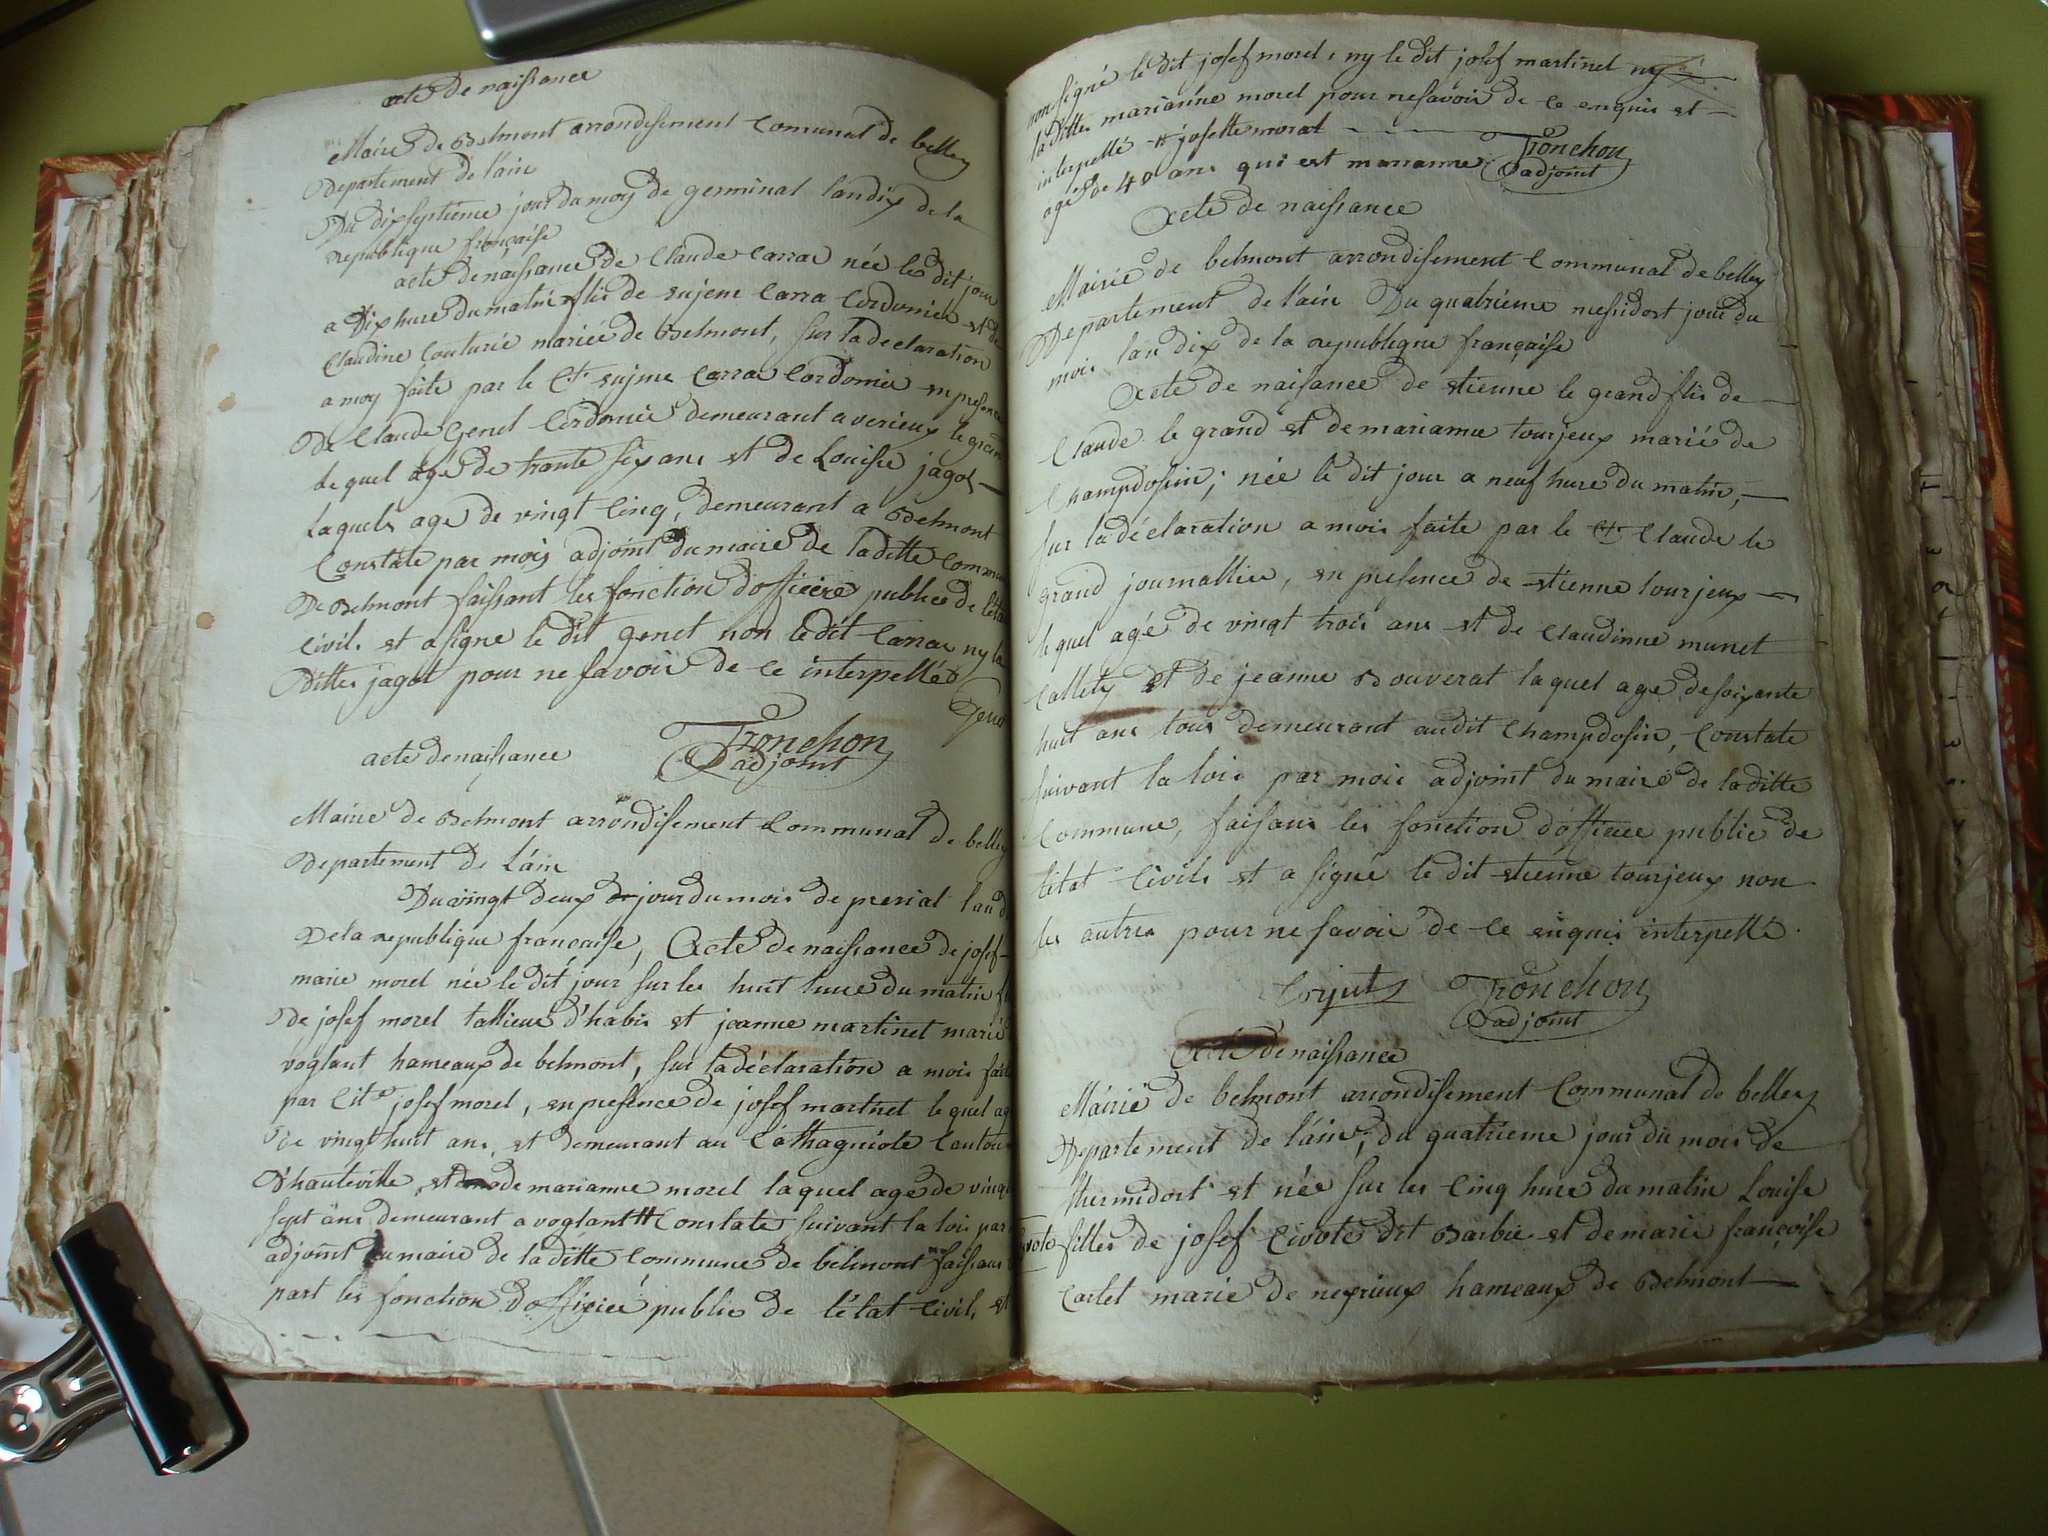 acte De naissance
Maire de Belmont arrondisement Comunal de belley
Departement De l'ain
Du dixseptieme jour du moy de germinal l'andix de la
republique française
acte de naissance de Claude Carra née le dit jour
a Dix hure du matin fils de Carra Cordonier et de
Claudine Couturié mariée de Belmont, sur la declaration
a moy faite par le Ct. Carra Cordonier en presence
De Claude Genet Cordonié demeurant a verieux le grand
Le quel age de trante six ans et de Louise jagot
Laquele age de vingt Cinq, demeurant a Belmont
Constate par mois adjoint du maire de la ditte Commune
De Belmont faissant les fonction dofficiere publice de l'état
Civil. et a signe le dit genet non le dit Carra ny la
Ditte jagot pour ne savoir de ce interpellé
Genet
Tronchon
adjoint
acte de naissance
Maire de Belmont arrondisement Communal de belley
Departement de L'ain
Du vingt deux jour du mois de prerial l'an
De la republique française, Acte De naissance de josef
marie morel née le dit jour sur les huit hure du matin
De josef morel tallieur d'habis et jeanne martinet marié
voglant hameaux de belmont, sur la déclaration a mois faite
par Cit. josef morel, en presence de josef martinet le quel agé
de vingt huit ans, et demeurant au Canton
D'hauteville, et de marianne morel laquel age de vingt
sept ans demeurant a voglant # Constate suivant la loi par
adjoint du maire de la ditte Commune de belmont faissant
part les fonction d'officié public de l'état Civil, et
non signé le dit josef morel, ny le dit josef martinet ny
la ditte marianne morel pour ne savoir de ce enquis et
interpellé # josette morat
agé de 40 ans qui est marianne
Tronchon
adjoint
Acte de naissance
Mairie de belmont arrondisement Communal de belley
Departement de l'ain Du quatrieme messidort jour du
mois l'an dix de la republique française
Acte de naisance de etienne le grand fils de
Claude le grand et de marianne tourjeux marié de
Champdosin; née le dit jour a neuf hure du matin,
sur la déclaration a mois faite par le Ct. Claude le
grand journallier, en presence de etienne tourjeux
le quel agé de vingt trois ans et de Claudinne munet
et de jeanne Bouverat laquel age de soixante
huit ans tous demeurant audit Champdosin, Constate
suivant la loi par mois adjoint du maire de la ditte
Commune, faisant les fonction d'officee public de
l'état Civil et a signé le dit etienne tourjeux non
les autres pour ne savoir de ce enquis interpellé.
Tronchon
adjoint
Acte de naissance
Mairie de belmont arrondisement Communal de belley
Departement de l'ain; du quatrieme jour du mois de
thermidort et née sur les Cinq hure du matin Louise
filles de josef Civote dit Barbie et de marie françoise
Carlet marié de neyrieux hameaux de Belmont